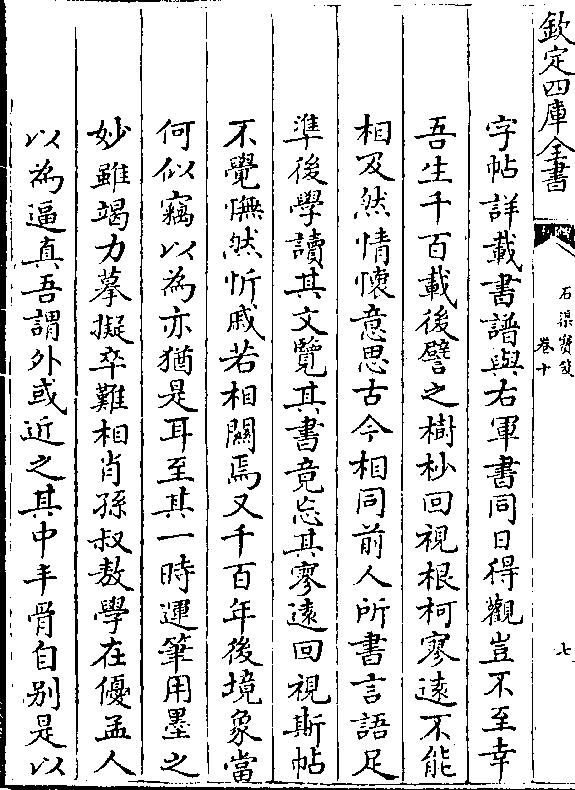 欽定四庫全書
石渠寳笈
卷十
七
字帖詳載書譜與右軍書同日得觀豈不至幸
吾生千百載後譬之樹杪回視根柯寥遠不能
相及然情懐意思古今相同前人所書言語足
準後學讀其文覽其書竟忘其寥遠回視斯帖
不覺憮然忻戚若相關焉又千百年後境象當
何似竊以為亦猶是耳至其一時運筆用墨之
妙雖竭力摹擬卒難相肖孫叔敖學在優孟人
以為逼真吾謂外或近之其中丰骨自别是以